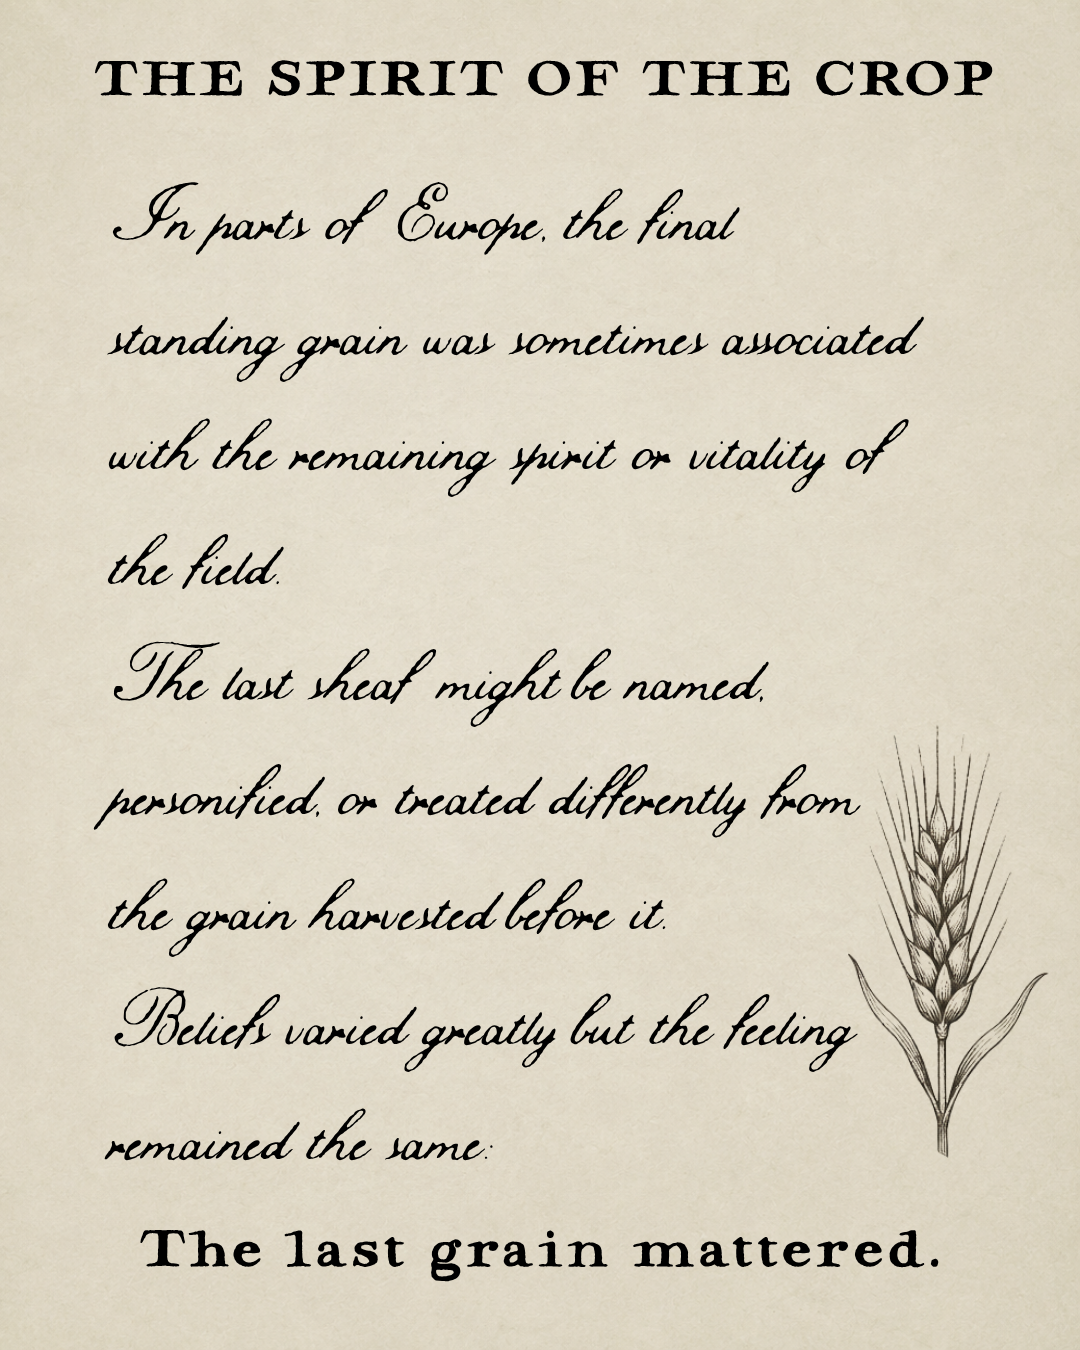 THE SPIRIT OF THE CROP
In parts of Europe, the final
standing grain was sometimes associated
with the remaining spirit or vitality of
the field.
The last sheaf might be named,
personified, or treated differently from
the grain harvested before it.
Beliefs varied greatly but the feeling
remained the same:
The last grain mattered.